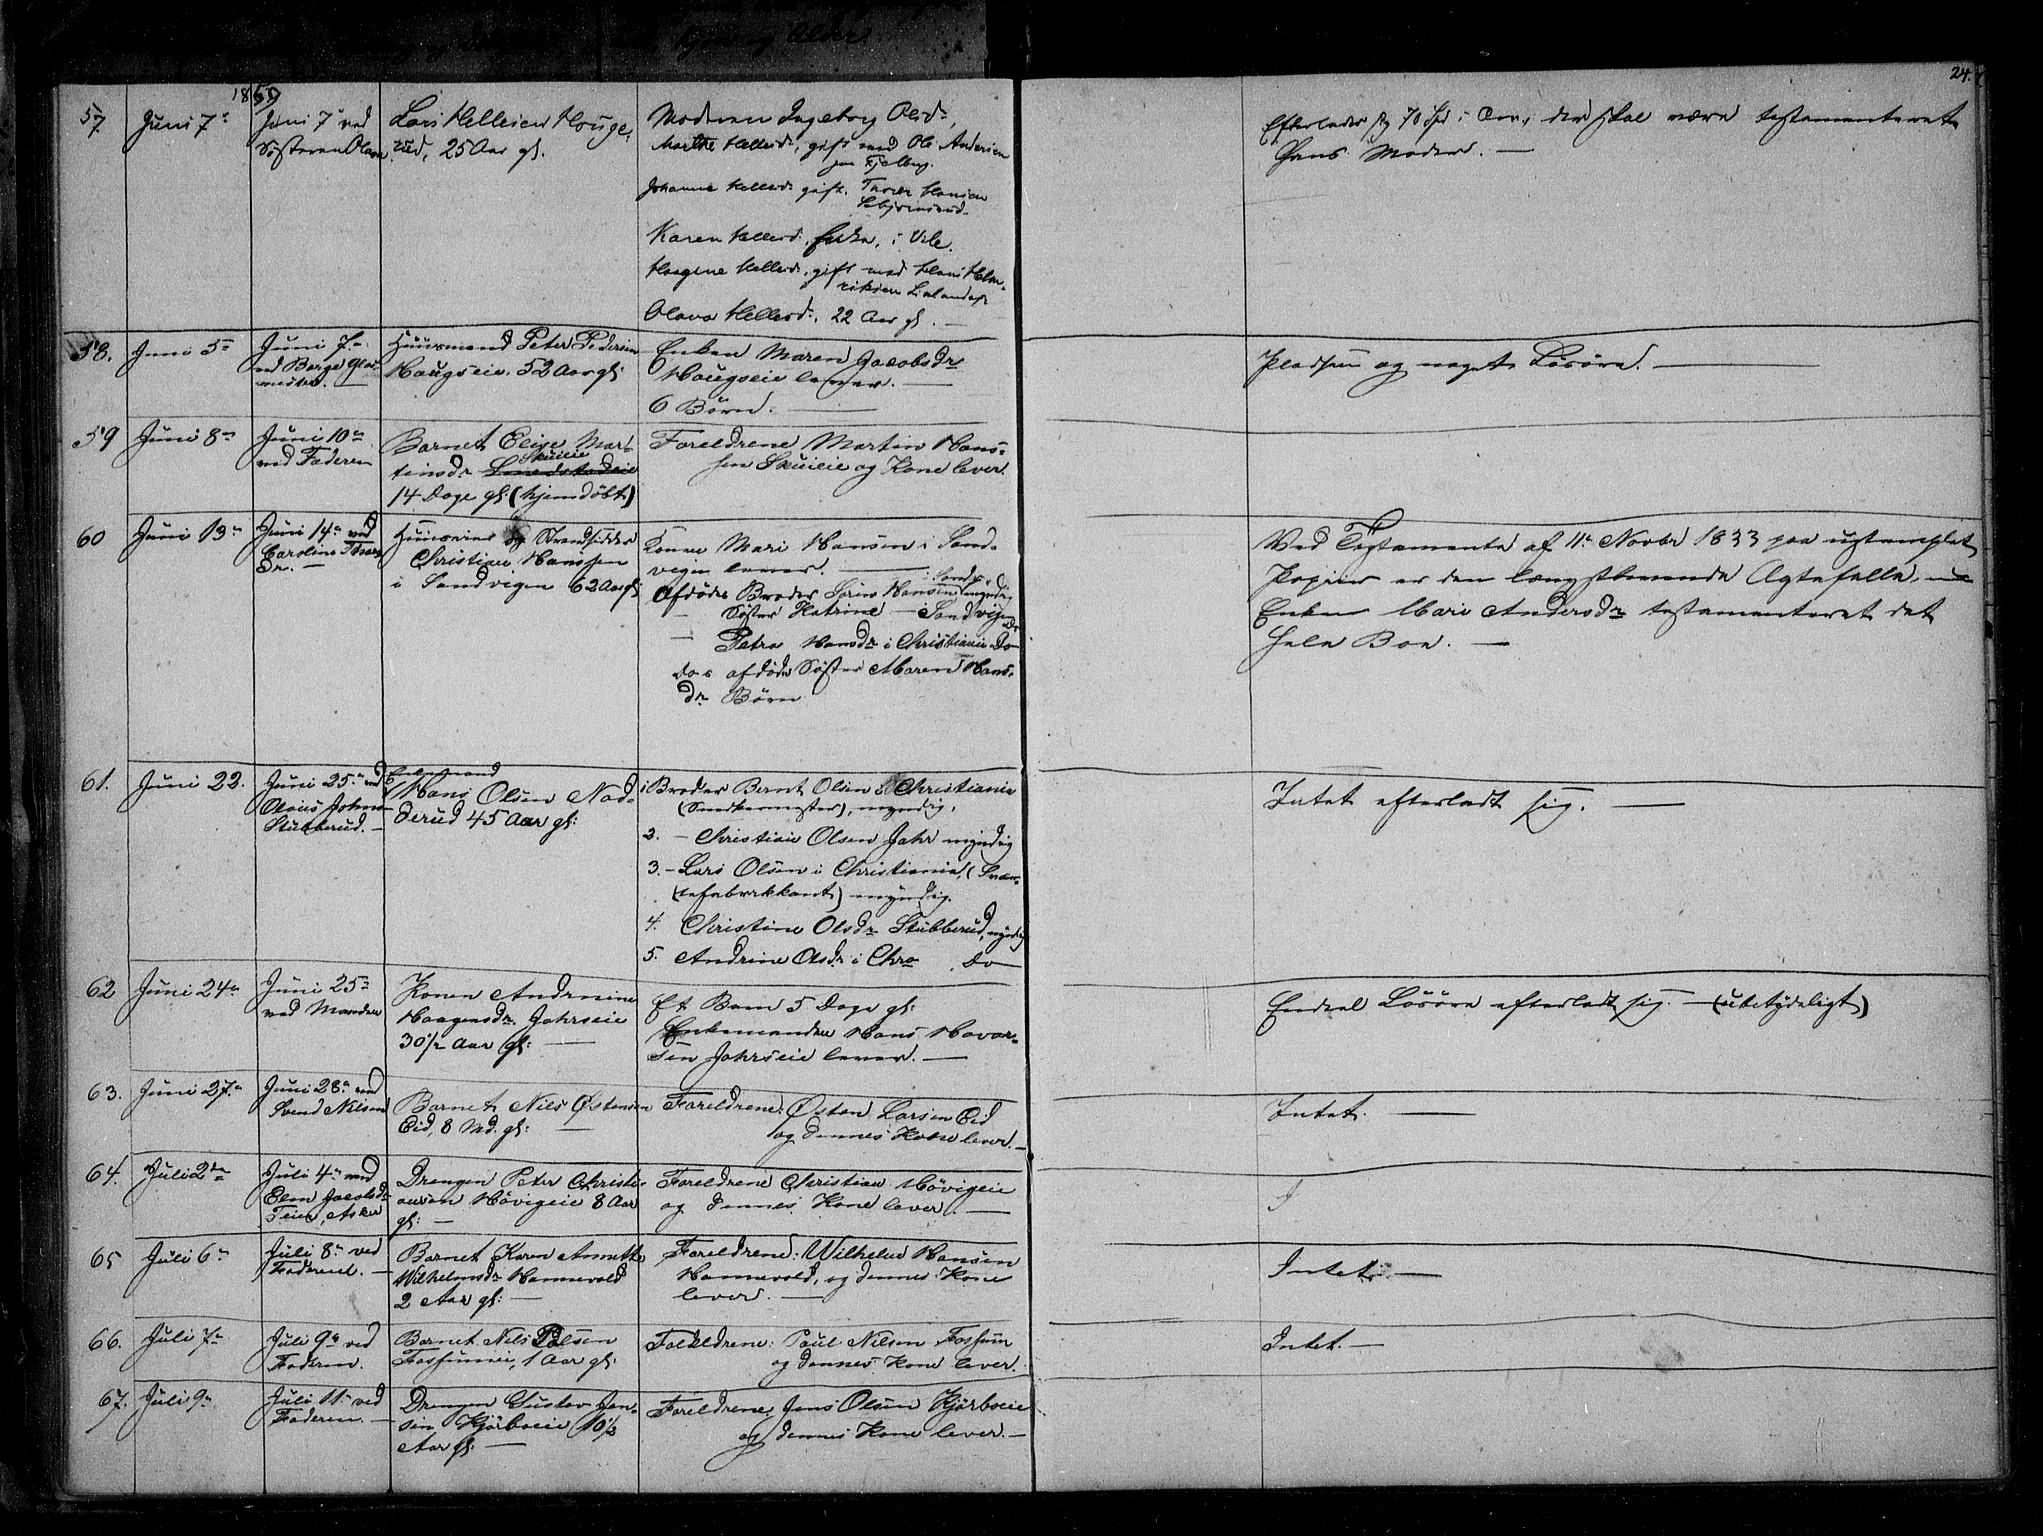 24.
1859
57
Juni 7de
Juni 7de ved
Søsteren Olava
Lars Hellesen Houge-
rud, 25 Aar gl.
Moderen Ingeborg Olsdr,
Marthe Hellesd, gift med Ole Andersen
Fjelberg.
Johanne Hellesd: gift. Thorer Hansen
Karen Hellesd. i
Haagine Hellesd. gift med Hans Hen-
riksen
Olava Hellesd:, 22 Aar gl. —
Efterlader sig 70 Spd i der skal være testamenteret
Hans Moder. —
58.
Juni 5te
Juni 7de
ved Børge Glas-
mester. —
Huusmand Peter Pedersen
Haugseie, 52 Aar gl:
Enken Maren Jacobsdr
Haugseie lever. —
6 Børn. —
Pladsen og noget Løsøre. —
59
Juni 8de
Juni 10de
ved Faderen
Barnet Elise Mar-
tinsdr Skuieie
14 Dage gl: (hjemdøbt)
Foreldrene Martin Hans-
sen Skuieie og Kone lever
60
Juni 13de
Juni 14de ved
Caroline Thors
Dr. —
Huuseier og Strandsidder
Christian Hanssen
i Sandvigen 62 Aar gl:
Konen Mari Hansen i Sand-
vigen lever. —
Afdødes Broder Søren Hansen i Sandv. myndig
— Søster Katrine — Sandvigen Do
— Petra Hansdr i Christiania Do
Do s afdøde Søster Maren Hans-
dr Børn
Ved Testamente af 11te Novbr 1833 paa ustemplet
Papiir er den længstlevende Ægtefælle, —
Enken Mari Andersdr testamenteret det
hele Boe. —
61.
Juni 22.
Juni 25de ved
Olaus Johns
Stubberud. —
Enkemand
Hans Olsen Nad-
derud 45 Aar gl:
1 Broder Bernt Olsen i Christiania
(Snedkermester), myndig.
2. — Christian Olsen Jahr myndig
3. — Lars Olsen i Christiania (
fabrikkant) myndig.
4. Christine Olsdr Stubberud, myndig
5. Andrine Olsdr i Chra. Do
Intet efterladt sig. —
62
Juni 24de
Juni 25de
ved Manden
Konen Andrine
Haagensdr. Jahrseie
30 1/2 Aar gl: —
Et Barn 5 Dage gl:
Enkemanden Hans Havor-
sen Jahrseie lever. —
Endeel Løsøre efterladt sig. — (ubetydeligt)
63.
Juni 27de
Juni 28de ved
Svend Nilsen
Barnet Nils Østensen
Eid, 8 Md. gl: —
Foreldrene: Østen Larsen Eid
og dennes Kone lever. —
Intet. —
64.
Juli 2den
Juli 4de ved
Elen Jacobsdr
Teien, Asker
Drengen Peter Christi-
ansen Høvigeie 8 Aar
gl: —
Foreldrene Christian Høvigeie
og dennes Kone lever. —
65
Juli 6te
Juli 8de ved
Faderen. —
Barnet Karen Annette
Wilhelmsdr Hannevold
2 Aar gl: —
Foreldrene: Wilhelm Hansen
Hannevold, og dennes Kone
lever. —
Intet. —
66.
Juli 7de
Juli 9de ved
Faderen.
Barnet Nils Pålsen
Fossumeie, 1 Aar gl:
Foreldrene: Paul Nilsen Fossum
og dennes Kone lever.
Intet. —
67.
Juli 9de
Juli 11te ved
Faderen. —
Drengen Gustav Jen-
sen Kjørboeie 10 1/2
Aar gl: —
Foreldrene, Jens Olsen Kjørboeie
og dennes Kone lever. —